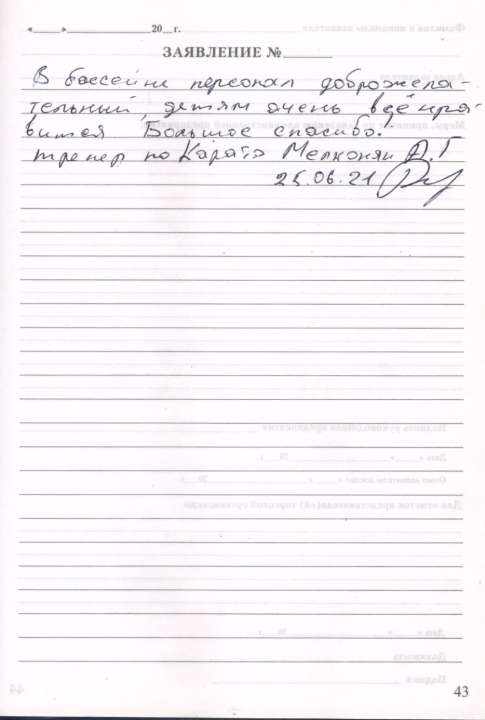 «____»______________20__г.
ЗАЯВЛЕНИЕ №______
В бассейне персонал доброжела-
тельный, детям очень всё нра-
вится Большое спасибо!
тренер по Каратэ Мелконян А.Г
25.06.21
43